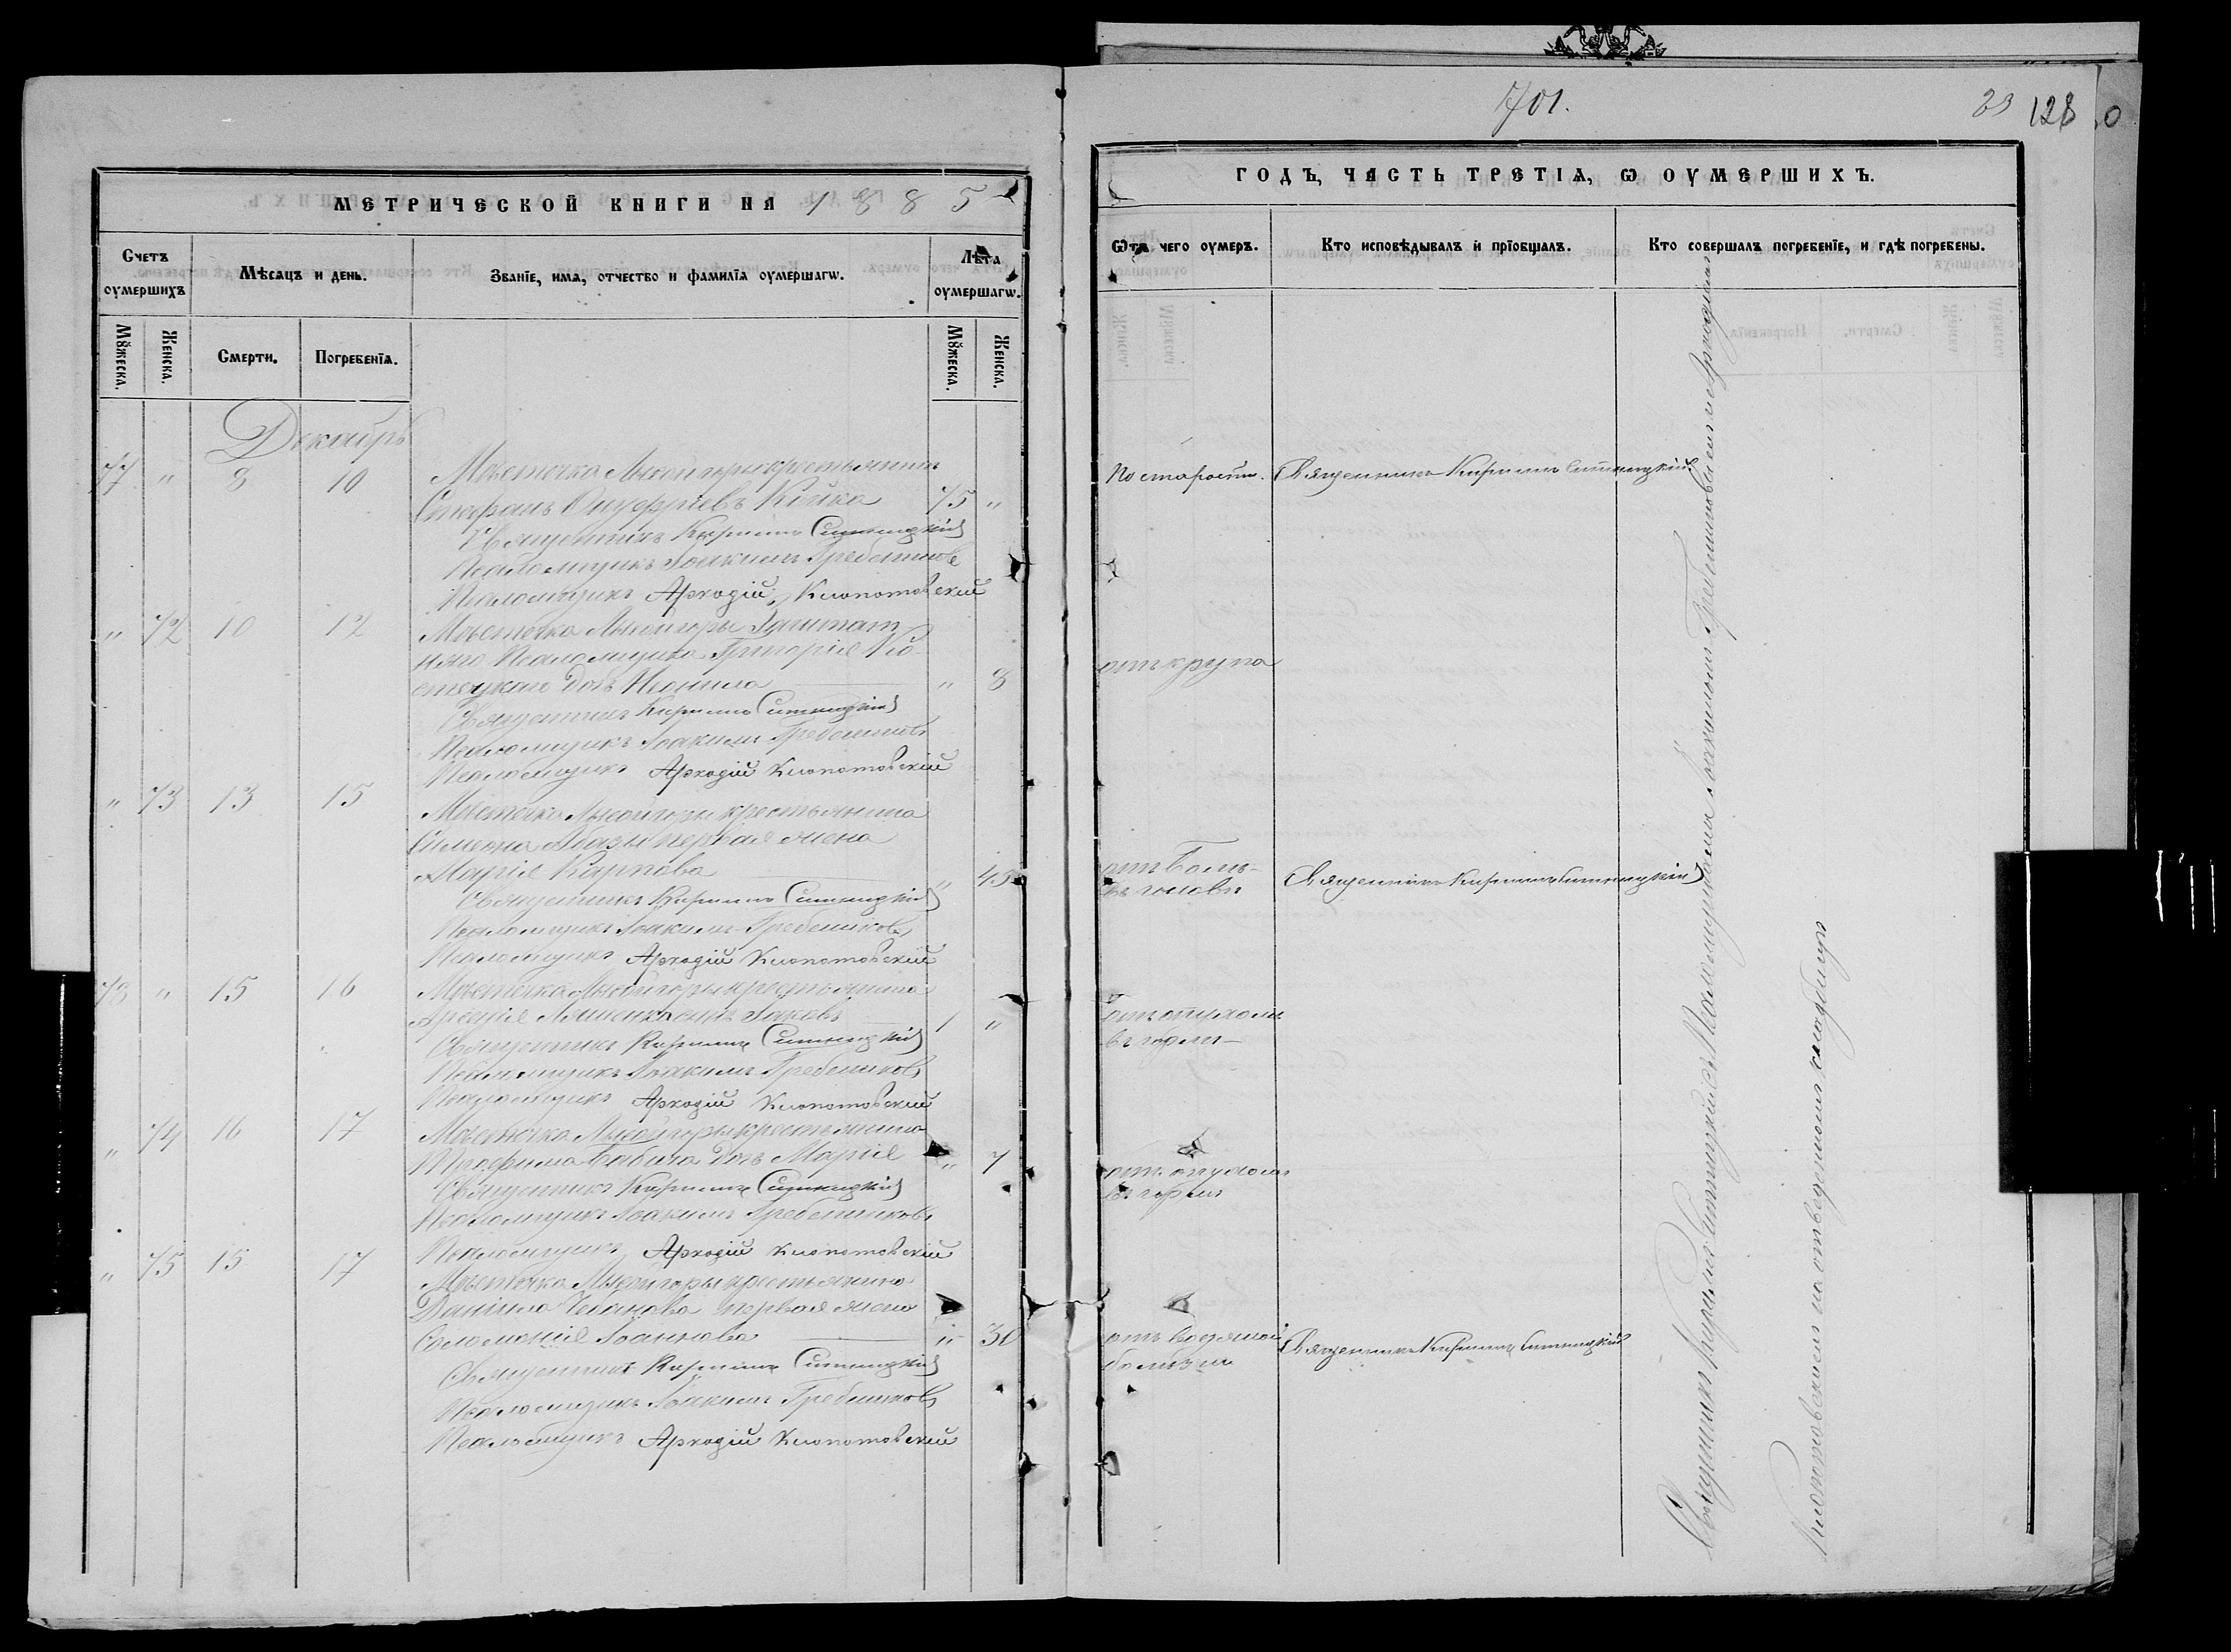 701.
23 128 0
МЕТРИЧЕСКОЙ КНИГИ НА 1885
ГОДЪ, ЧАСТЬ ТРЕТІѦ, Ѡ ОУМЕРШИХЪ.
Счетъ оумершихъ
Мѣсѧцъ и день.
Званіе, имѧ, отчество и фамиліѧ оумершагѡ.
Лѣта оумершагѡ.
Ѿ чего оумеръ.
Кто исповѣдывалъ и пріобщалъ.
Кто совершалъ погребеніе, и гдѣ погребены.
Мꙋжеска.
Женска.
Смерти.
Погребеніѧ.
Мꙋжеска.
Женска.
Декабрь
77 " 8 10 Мѣстечка Лысой горы крестьянинъ
Стефанъ Онуфріевъ Кійка 75 " По старости. Священникъ Кириллъ Ситницкій
Священникъ Кириллъ Ситницкій
Псаломщикъ Іоакимъ Гребенниковъ
Псаломщикъ Аркадій Клопотовскій
" 72 10 12 Мѣстечка Лысой горы
Псаломщика Григорія
дочь Неонила " 8 отъ крупа
Священникъ Кириллъ Ситницкій
Псаломщикъ Іоакимъ Гребенниковъ
Псаломщикъ Аркадій Клопотовскій
" 73 13 15 Мѣстечка Лысой горы крестьянина
Симеона первая жена
Марія Карпова " 45 отъ боли Священникъ Кириллъ Ситницкій
въ головѣ
Священникъ Кириллъ Ситницкій
Псаломщикъ Іоакимъ Гребенниковъ
Псаломщикъ Аркадій Клопотовскій
78 " 15 16 Мѣстечка Лысой горы крестьянина
сынъ Іаковъ 1 " отъ опухоли
въ горлѣ
Священникъ Кириллъ Ситницкій
Псаломщикъ Іоакимъ Гребенниковъ
Псаломщикъ Аркадій Клопотовскій
" 74 16 17 Мѣстечка Лысой горы крестьянина
Трофима Бабича дочь Марія " 7 отъ опухоли
въ горлѣ
Священникъ Кириллъ Ситницкій
Псаломщикъ Іоакимъ Гребенниковъ
Псаломщикъ Аркадій Клопотовскій
" 75 15 17 Мѣстечка Лысой горы крестьянина
Даніила первая жена
Соломонія Іоаннова " 30 отъ водяной Священникъ Кириллъ Ситницкій
болѣзни
Священникъ Кириллъ Ситницкій
Псаломщикъ Іоакимъ Гребенниковъ
Псаломщикъ Аркадій Клопотовскій
Священникъ Кириллъ Ситницкій съ Псаломщиками Іоакимомъ Гребенниковымъ и Аркадіемъ
Клопотовскимъ на отведенномъ кладбищѣ